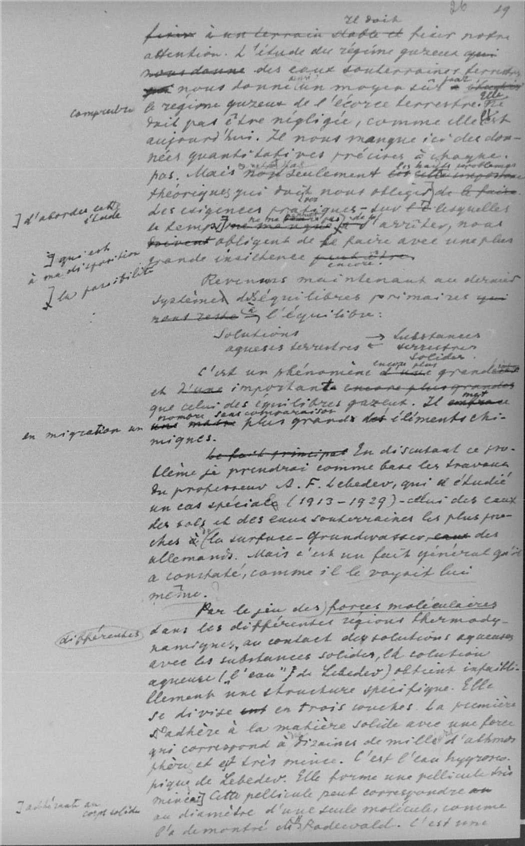 20 29
il doit
fixer à un terrain stable et fixer notre
attention. L'étude du régime gazeux qui
nous donne des eaux souterraines
nous donne un moyen sûr
comprendre le régime gazeux de l'écorce terrestre. Elle ne
doit pas être négligée, comme elle l'est
aujourd'hui. Il nous manque ici des don-
nées quantitatives précises à chaque
pas. Mais non seulement
théoriques qui doit nous obliger de le faire
] d'aborder cette étude
des exigences pratiques - sur lesquelles
le temps m'arrêter, nous
] qui est à ma disposition
doivent obligent de le faire avec une plus
grande insistance peut être encore.
] la possibilité
Revenons maintenant au dernier
système d'équilibres primaires qui
nous reste à l'équilibre:
Solutions → Substances
aqueuses terrestres ← terrestres
solides.
C'est un phénomène encore plus grandiose
et d'une importante encore plus grandes
que celui des équilibres gazeux. Il met
en migration un nombre sans comparaison plus grand des éléments chi-
miques.
Le fait principal En discutant ce pro-
blème je prendrai comme base les travaux
du professeur A. F. Lebedev, qui a étudié
un cas spécial (1913-1929) - celui des eaux
des sols et des eaux souterraines les plus pro-
ches à la surface - Grundwasser, des
allemands. Mais c'est un fait général qu'il
a constaté, comme il le voyait lui
même.
Par le jeu des forces moléculaires
différentes dans les différentes régions thermody-
namiques, au contact des solutions aqueuses
avec les substances solides, la solution
aqueuse ("l'eau" de Lebedev) obtient infailli-
blement une structure spécifique. Elle
se divise en trois couches. La première
adhère à la matière solide avec une force
qui correspond à dizaines de mille d'athmos-
phère et est très mince. C'est l'eau hygrosco-
pique de Lebedev. Elle forme une pellicule très
] adhérante au corps solide
mince] Cette pellicule peut correspondre
au diamètre d'une seule molécule, comme
l'a démontré Rodewald. C'est une